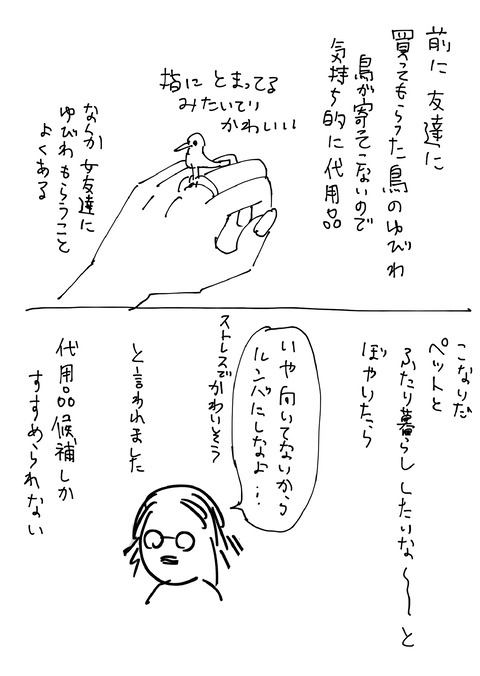 前に 友達に
買ってもらった鳥のゆびわ
鳥が寄ってこないので
気持ち的に代用品
指に とまってる
みたいで
かわいい
なんか 女友達に
ゆびわ もらうこと
よくある
こないだ
ペットと
ふたり暮らし したいな〜〜と
ぼやいたら
いや 向いてないから
ルンバにしなよ…
ストレスでかわいそう
と言われました
代用品候補しか
すすめられない